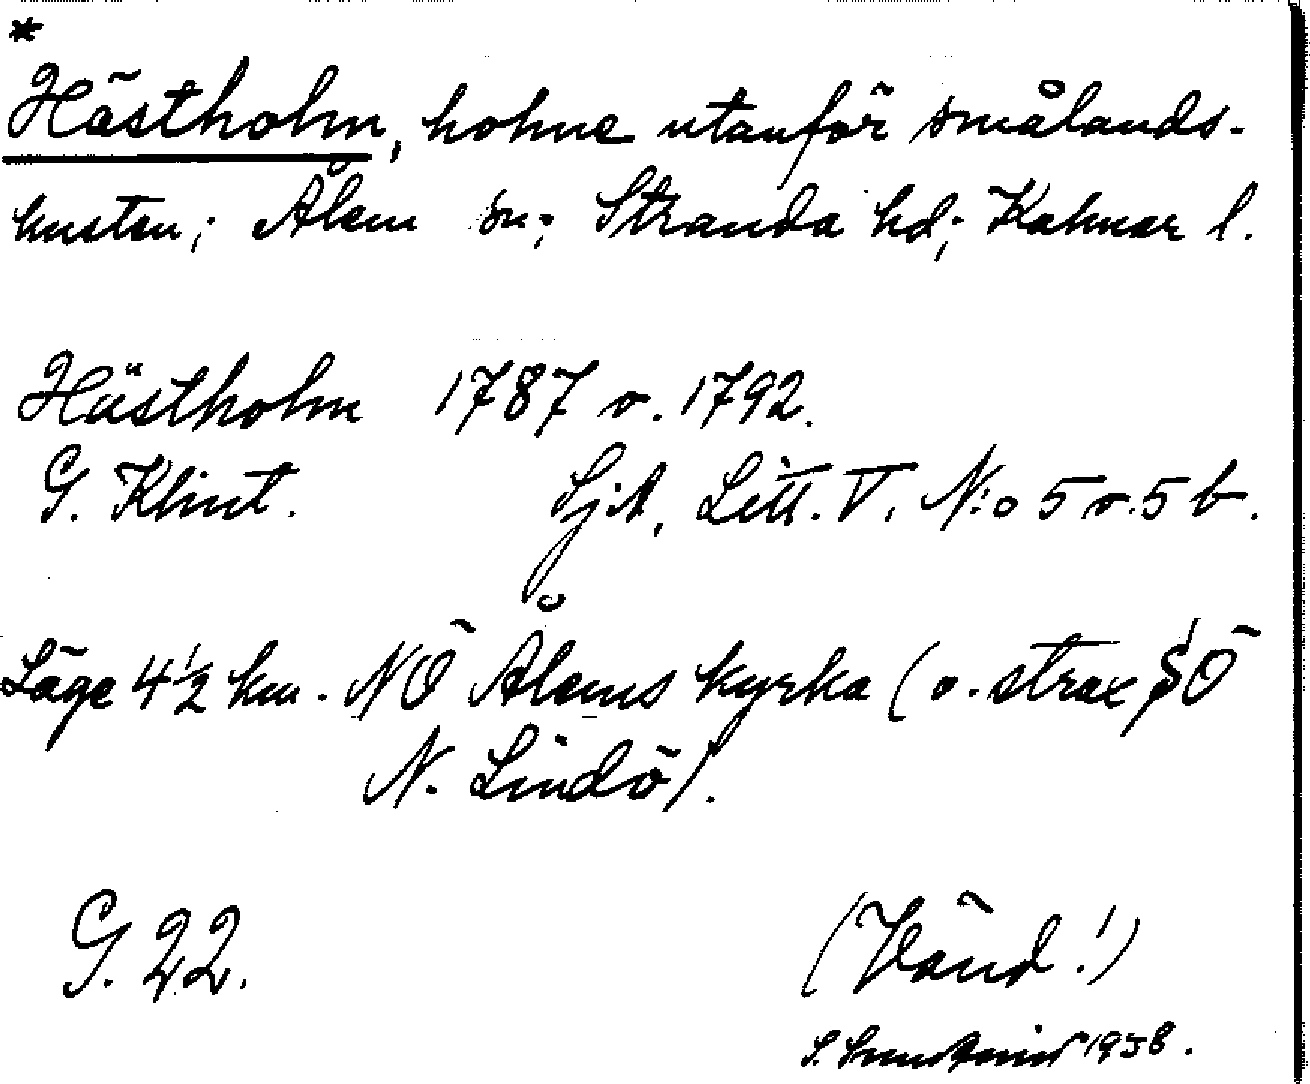 *
Hästholm, holme utanför smålands-
kusten; Ålem sn; Stranda hd; Kalmar l.
Hästholm 1787 o. 1792.
G. Klint. SjA, Litt. V, N:o 5 o. 5 b.
Läge 4 1/2 km. NÖ Ålems kyrka (o. strax SÖ
N. Lindö).
G. 22. (Vänd!)
S. 1938.